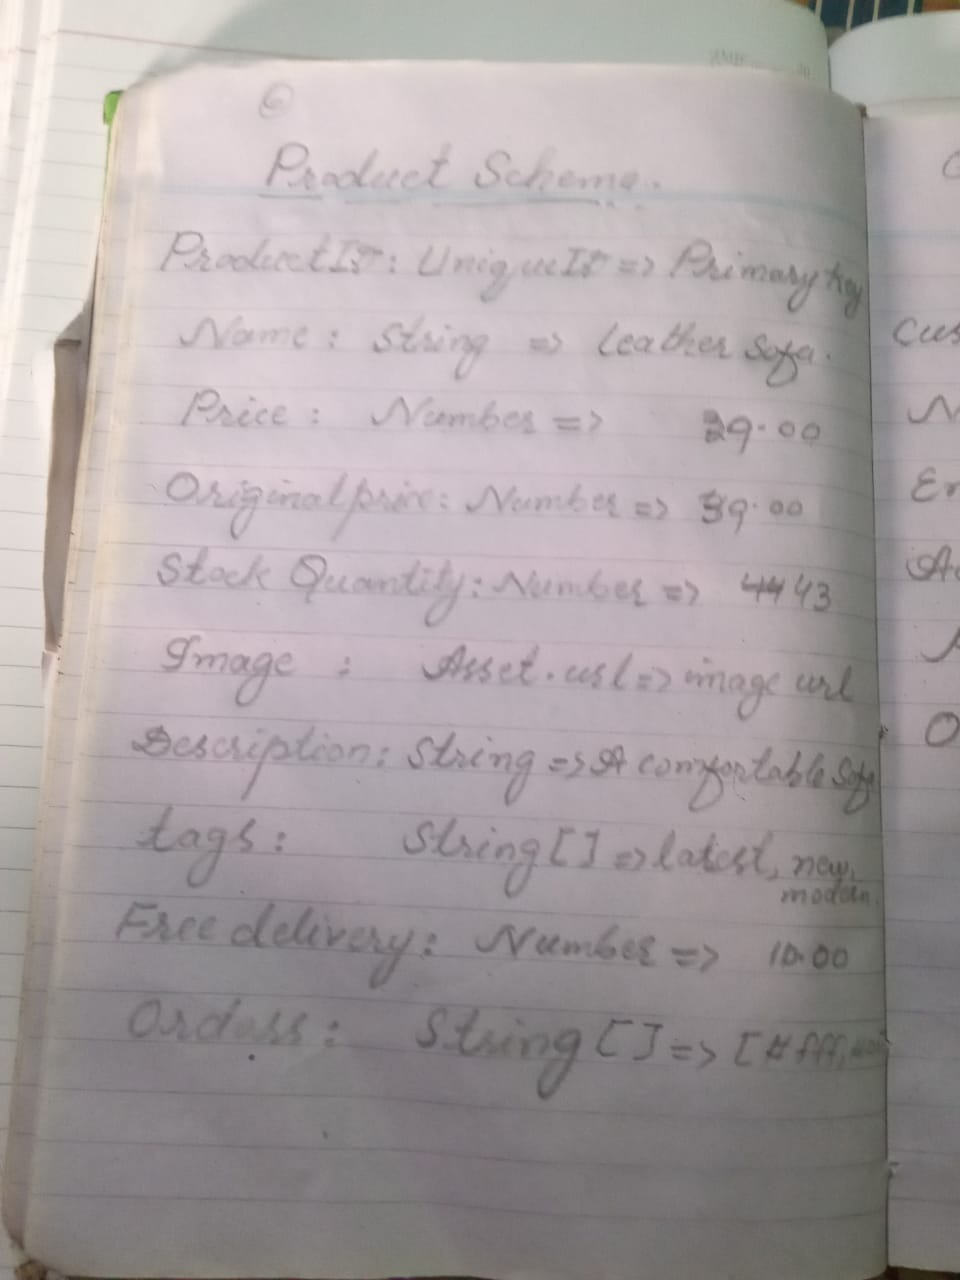 6
Product Schema.
ProductID: UniqueID => Primary key
Name: String => Leather Sofa.
Price: Number => 29.00
Originalprice: Number => 39.00
Stock Quantity: Number => 4443
Image: Asset.url => image url
Description: String => A comfortable Sofa
tags: String [] => latest, new,
modern.
Free delivery: Number => 10.00
String [] => [#fff,
Cus
N
Em
O